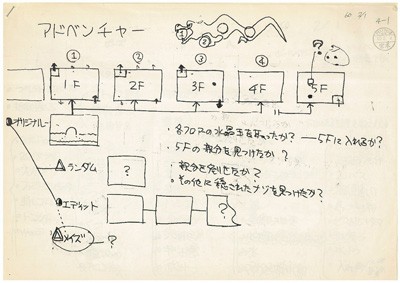 60 37
4-1
アドベンチャー
① ②
① ② ③ ④ ?
1F 2F 3F 4F 5F
オリジナル
・各フロアの水晶玉を取ったか? — 5Fに入れるか?
・5Fの親分を見つけたか?
・親分を倒せたか?
・その他に穏されたナゾを見つけたか?
ランダム ?
エディット ?
メイズ ?